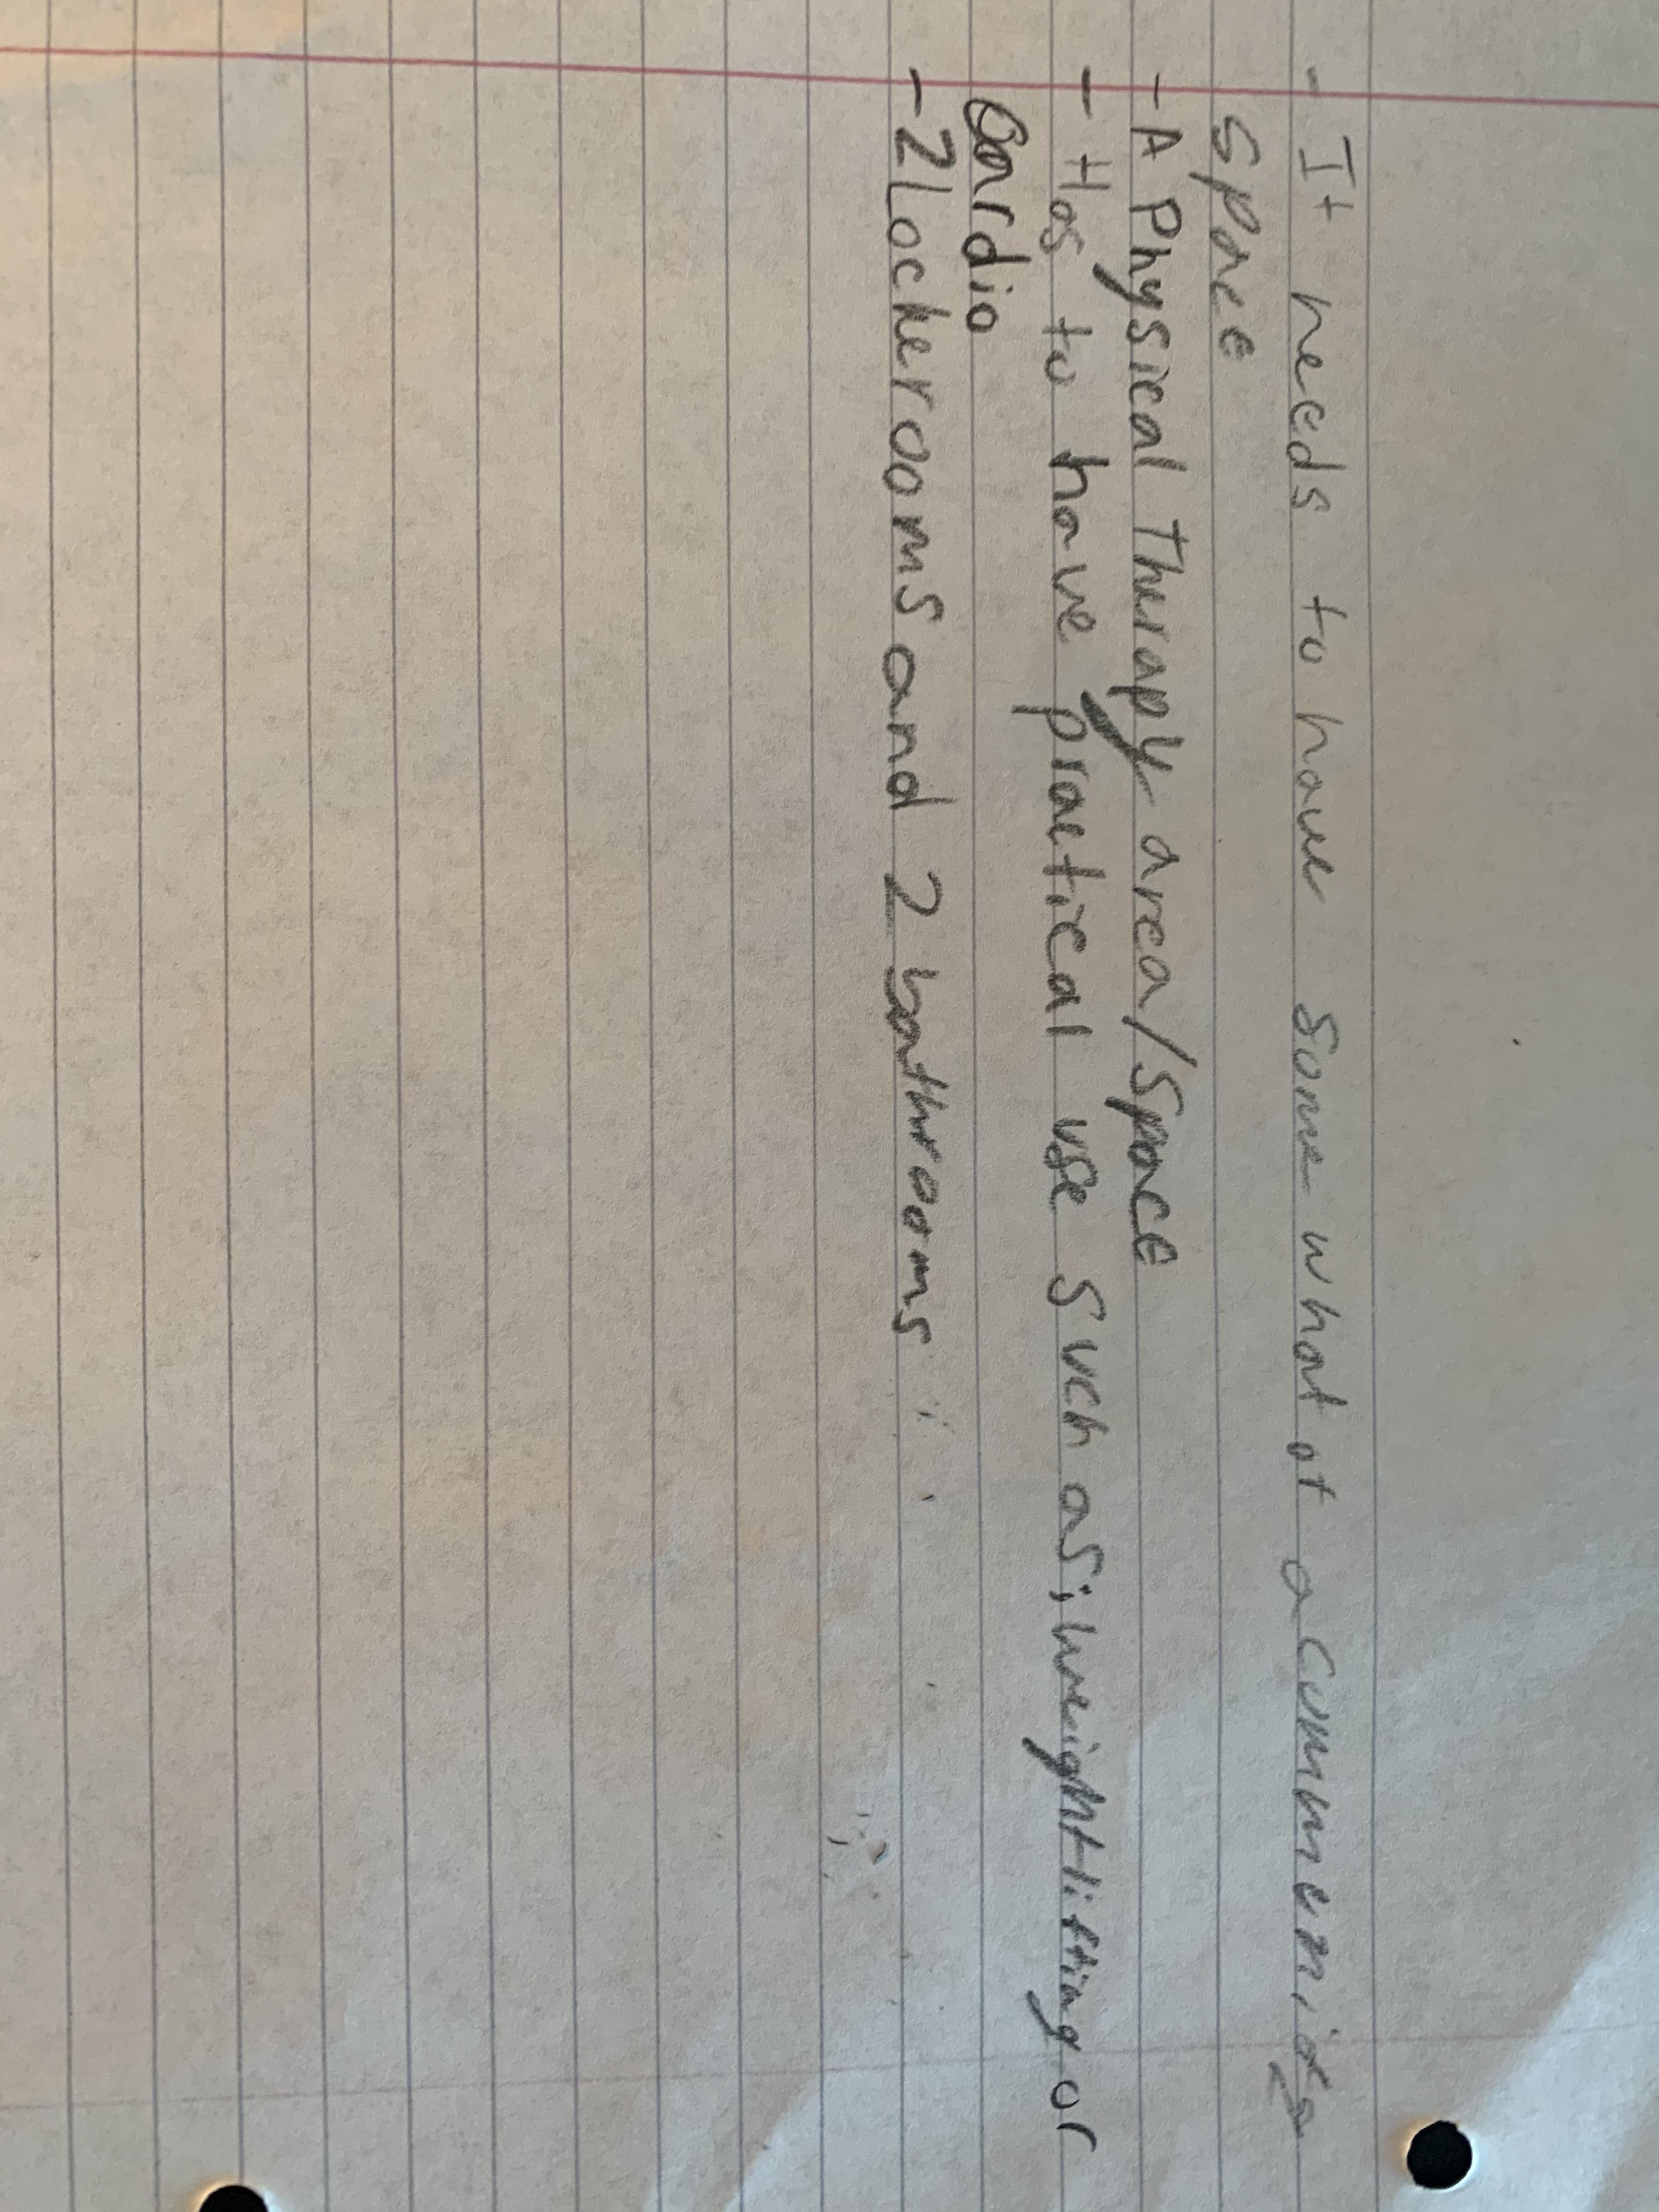 - It needs to have some what of a community
space
- A Physical Therapy area/space
- Has to have practical use such as; weightlifting or
Cardio
- 2 Lockerooms and 2 bathrooms